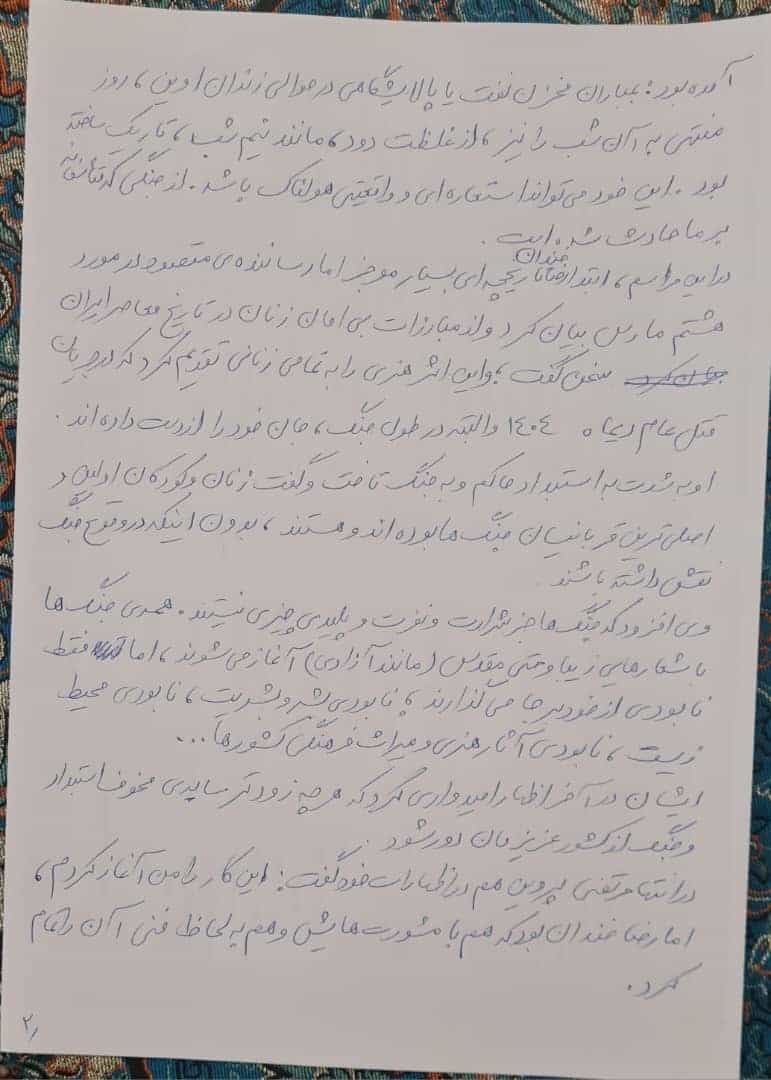 آمده بود: بمباران مخزن نفت یا پالایشگاهی در حوالی زندان اوین، روز
منتهی به آن شب را نیز، از غلظت دود، مانند نیم شب، تاریک ساخته
بود. این خود می‌تواند استعاره‌ای و واقعیتی هولناک باشد. از جنگی که متأسفانه
بر ما حادث شده است.
در این مراسم، ابتدا رضا خندان تاریخچه‌ای بسیار موجز اما رساننده‌ی مقصود در مورد
هشتم مارس بیان کرد و از مبارزات بی امان زنان در تاریخ معاصر ایران
سخن گفت، و این اثر هنری را به تمامی زنانی تقدیم کرد که در جریان
قتل عام دیماه ۱۴۰۴ و البته در طول جنگ، جان خود را از دست داده‌اند.
او به شدت به استبداد حاکم و به جنگ تاخت و گفت زنان و کودکان اولین و
اصلی ترین قربانیان جنگ ها بوده اند و هستند، بدون اینکه در وقوع جنگ
نقش داشته باشند.
وی افزود که جنگ ها جز شرارت و نفرت و پلیدی چیزی نیستند. همه‌ی جنگ ها
با شعارهایی زیبا و حتی مقدس (مانند آزادی) آغاز می شوند، اما فقط
نابودی از خود بر جا می گذارند، نابودی بشر و بشریت، نابودی محیط
زیست، نابودی آثار هنری و میراث فرهنگی کشورها...
ایشان در آخر اظهار امیدواری کرد که هر چه زودتر سایه‌ی مخوف استبداد
و جنگ از کشور عزیزمان دور شود.
در انتها مرتضی پروین هم در اظهارات خود گفت: این کار را من آغاز کردم،
اما رضا خندان بود که هم با مشورت هایش و هم به لحاظ فنی آن را تمام
کرد.
۲